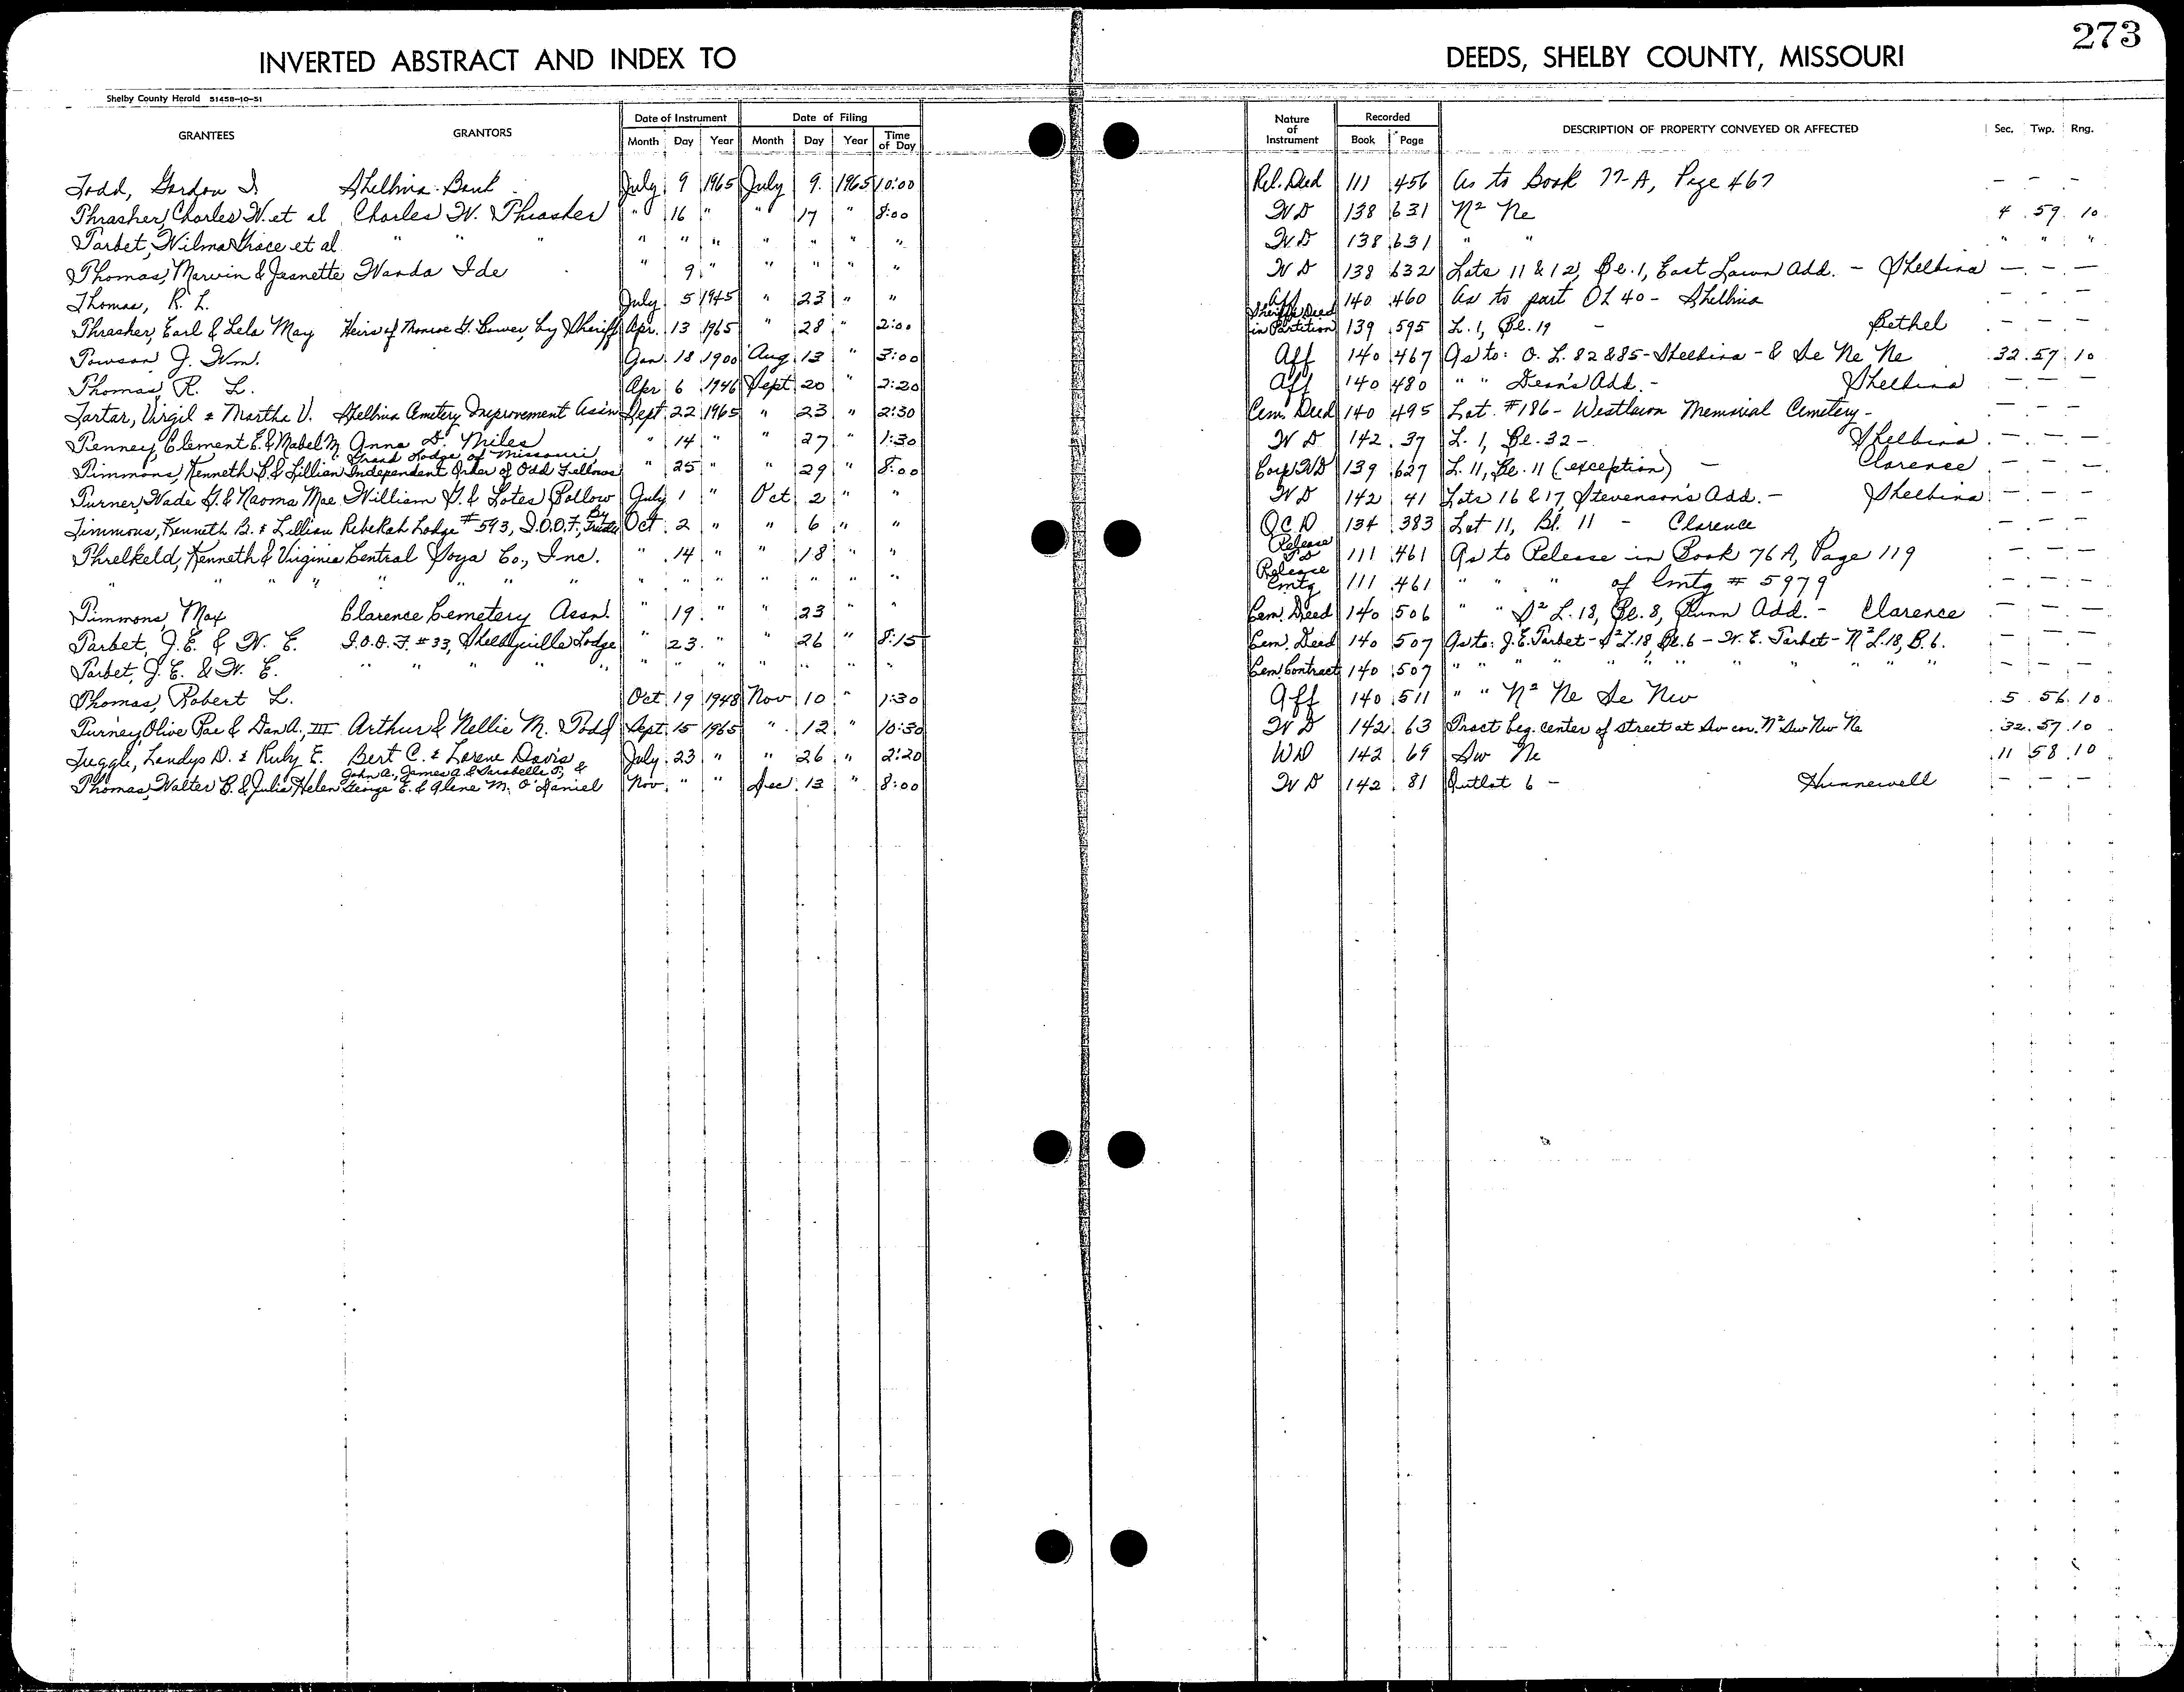 273
INVERTED ABSTRACT AND INDEX TO DEEDS, SHELBY COUNTY, MISSOURI
Shelby County Herald 51458-10-51
GRANTEES GRANTORS Date of Instrument Date of Filing Nature of Instrument Recorded DESCRIPTION OF PROPERTY CONVEYED OR AFFECTED Sec. Twp. Rng.
Month Day Year Month Day Year Time of Day Book Page
Todd, Gordon I. Shelbina Bank July 9 1965 July 9 1965 10:00 Rel. Deed 111 456 As to Book 77-A, Page 467 - - -
Thrasher, Charles W. et al Charles W. Thrasher " 16 " " 17 " 8:00 W D 138 631 N² Ne 4 59 10
Tarbet, Wilma Grace et al " " " " " " " " " " W D 138 631 " " " " "
Thomas, Marvin & Jeanette Wanda Ide " 9 " " " " " W D 138 632 Lots 11 & 12, Bl. 1, East Lawn Add. - Shelbina - - -
Thomas, R. L. July 5 1945 " 23 " " Aff 140 460 As to part OL 40 - Shelbina - - -
Thrasher, Earl & Lela May Heirs of Monroe G. Bower, by Sheriff Apr. 13 1965 " 28 " 2:00 Sheriff's Deed in Partition 139 595 L. 1, Bl. 19 - Bethel - - -
Towson J. Wm. Jan 18 1900 Aug 13 " 3:00 Aff 140 467 As to: O. L. 82 & 85 - Shelbina - & Se Ne Ne 32 57 10
Thomas, R. L. Apr 6 1946 Sept 20 " 2:20 Aff 140 480 " " Dean's Add. - Shelbina - - -
Tartar, Virgil & Martha V. Shelbina Cemetery Improvement Ass'n Sept 22 1965 " 23 " 2:30 Cem. Deed 140 495 Lot #186 - Westlawn Memorial Cemetery - - - -
Tenney, Clement E. & Mabel M. Anna D. Miles " 14 " " 27 " 1:30 W D 142 37 L. 1, Bl. 32 - Shelbina - - -
Timmons, Kenneth B. & Lillian Grand Lodge of Missouri, Independent Order of Odd Fellows " 25 " " 29 " 8:00 Corp WD 139 627 L. 11, Bl. 11 (exception) - Clarence - - -
Turner, Wade G. & Naoma Mae William G. & Lotes Pollow July 1 " Oct 2 " " W D 142 41 Lots 16 & 17, Stevenson's Add. - Shelbina - - -
Timmons, Kenneth B. & Lillian Rebekah Lodge #593, I.O.O.F., By Oct 2 " " 6 " " Q C D 134 383 Lot 11, Bl. 11 - Clarence - - -
Threlkeld, Kenneth & Virginia Central Soya Co., Inc. " 14 " " 18 " " Release TD 111 461 As to Release in Book 76A, Page 119 - - -
" " " " " " " " " " " " " " " " Release Cmtg 111 461 " " " of Cmtg # 5979 - - -
Timmons, Max Clarence Cemetery Assn. " 19 " " 23 " " Cem. Deed 140 506 " " S² L. 18, Bl. 8, Dunn Add. - Clarence - - -
Tarbet, J. E. & W. E. I.O.O.F. #33, Shelbyville Lodge " 23 " " 26 " 8:15 Cem. Deed 140 507 As to: J. E. Tarbet - S² L. 18, Bl. 6 - W. E. Tarbet - N² L. 18, B. 6. - - -
Tarbet, J. E. & W. E. " " " " " " " " " " " " Cem. Contract 140 507 " " " " " " " " " " " " - - -
Thomas, Robert L. Oct 19 1948 Nov 10 " 1:30 Aff 140 511 " " N² Ne Se Nw 5 56 10
Turney, Olive Rae & Dan A., III Arthur & Nellie M. Todd Sept 15 1965 " 12 " 10:30 W D 142 63 Tract beg. center of street at Sw cor. N² Sw Nw Ne 32 57 10
Tuggle, Landys D. & Ruby E. Bert C. & Lorene Davis July 23 " " 26 " 2:20 WD 142 69 Sw Ne 11 58 10
Thomas, Walter B. & Julia Helen John A., James A. & Sarabelle F., & George E. & Alene M. O'Daniel Nov " " Dec 13 " 8:00 W D 142 81 Outlot 6 - Hunnewell - - -